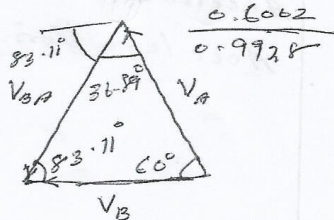 0.6002
0.9928
83.11°
V_BA
36.89°
V_A
83.11°
60°
V_B